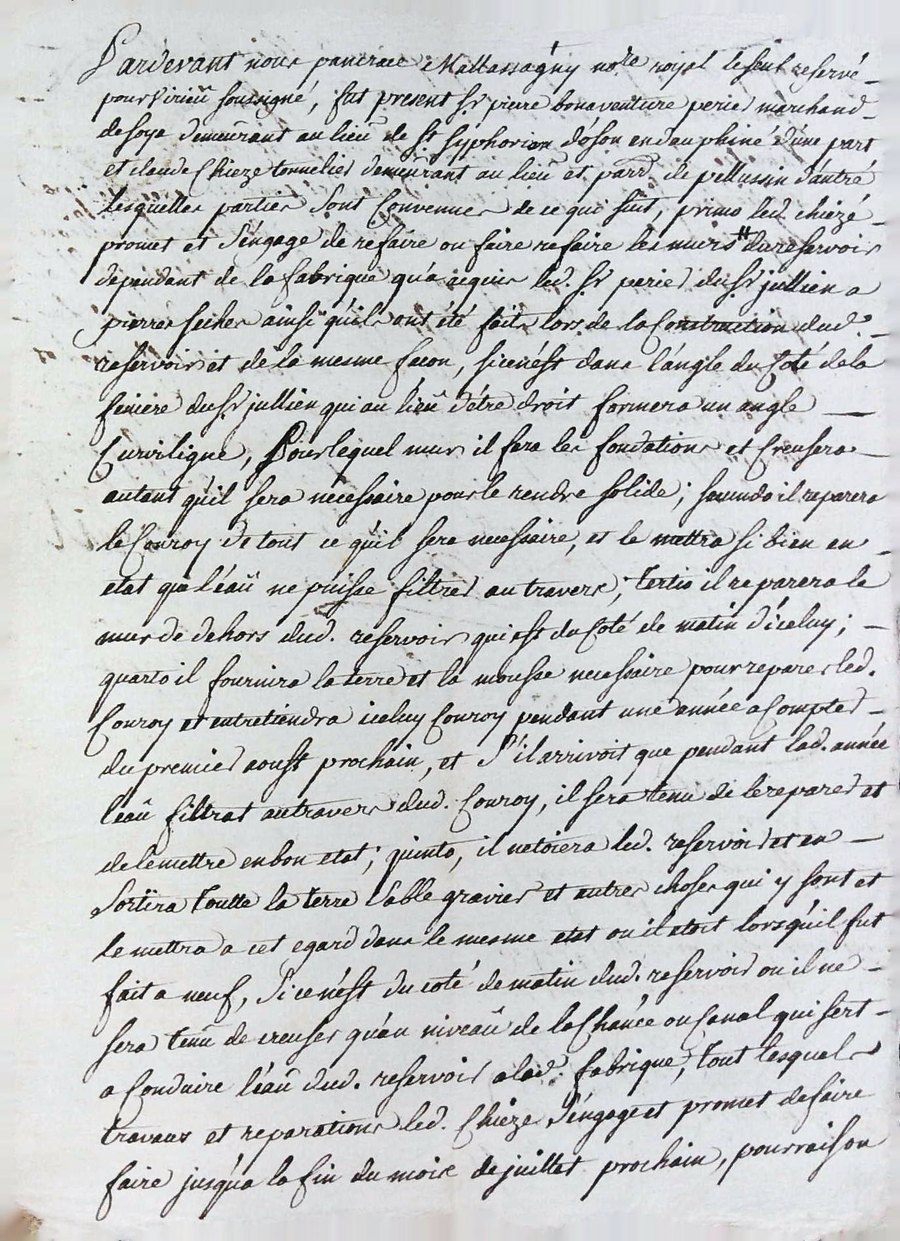 Pardevant nous pancrace Mattassagny no.re royal le seul reservé
pour Virieu soussigné, fut present S.r pierre bonaventure perier marchand
de soye demeurant au lieu de S.t Syphorien d'oson en dauphiné d'une part
et claude Chieze tonnelier demeurant au lieu et parr. de pellussin d'autre
lesquelles parties sont Convenues de ce qui suit, primo led. chieze
promet et s'engage de refaire ou faire refaire les murs # du reservoir
dependant de la fabrique qu'a acquis led. S.r perier du S.r jullien a
pierres seches ainsi qu'ils ont été faits lors de la Construction dud.
reservoir et de la mesme facon, si ce n'est dans l'angle du Coté de la
feniere du S.r jullien qui au lieu d'être droit formera un angle
Curviligne, Pour lequel mur il fera les fondations et Creusera
autant qu'il sera necessaire pour le rendre solide; secundo il reparera
le Conroy de tout ce qu'il sera necessaire, et le mettra si bien en
etat que l'eau ne puisse filtrer au travers; Tertio il reparera le
mur de dehors dud. reservoir qui est du Coté de matin d'icelui;
quarto il fournira la terre et la mousse necessaire pour reparer led.
Conroy et entretiendra iceluy Conroy pendant une année a Compter
du premier aoust prochain, et s'il arrivoit que pendant lad. année
l'eau filtrat au travers dud. Conroy, il sera tenu de le reparer et
de le mettre en bon etat; quinto, il netoiera led. reservoir et en
Sortira Toutte la terre sable gravier et autres choses qui y sont et
le mettra a cet egard dans le mesme etat ou il etoit lorsqu'il fut
fait a neuf, si ce n'est du coté de matin dud. reservoir ou il ne
sera tenu de creuser qu'au niveau de la Chanée ou Canal qui sert
a Conduire l'eau dud. reservoir a lad. fabrique, Tout lesquels
travaux et reparations led. Chieze s'engage et promet de faire
faire jusqu'a la fin du mois de juillet prochain, pour raison